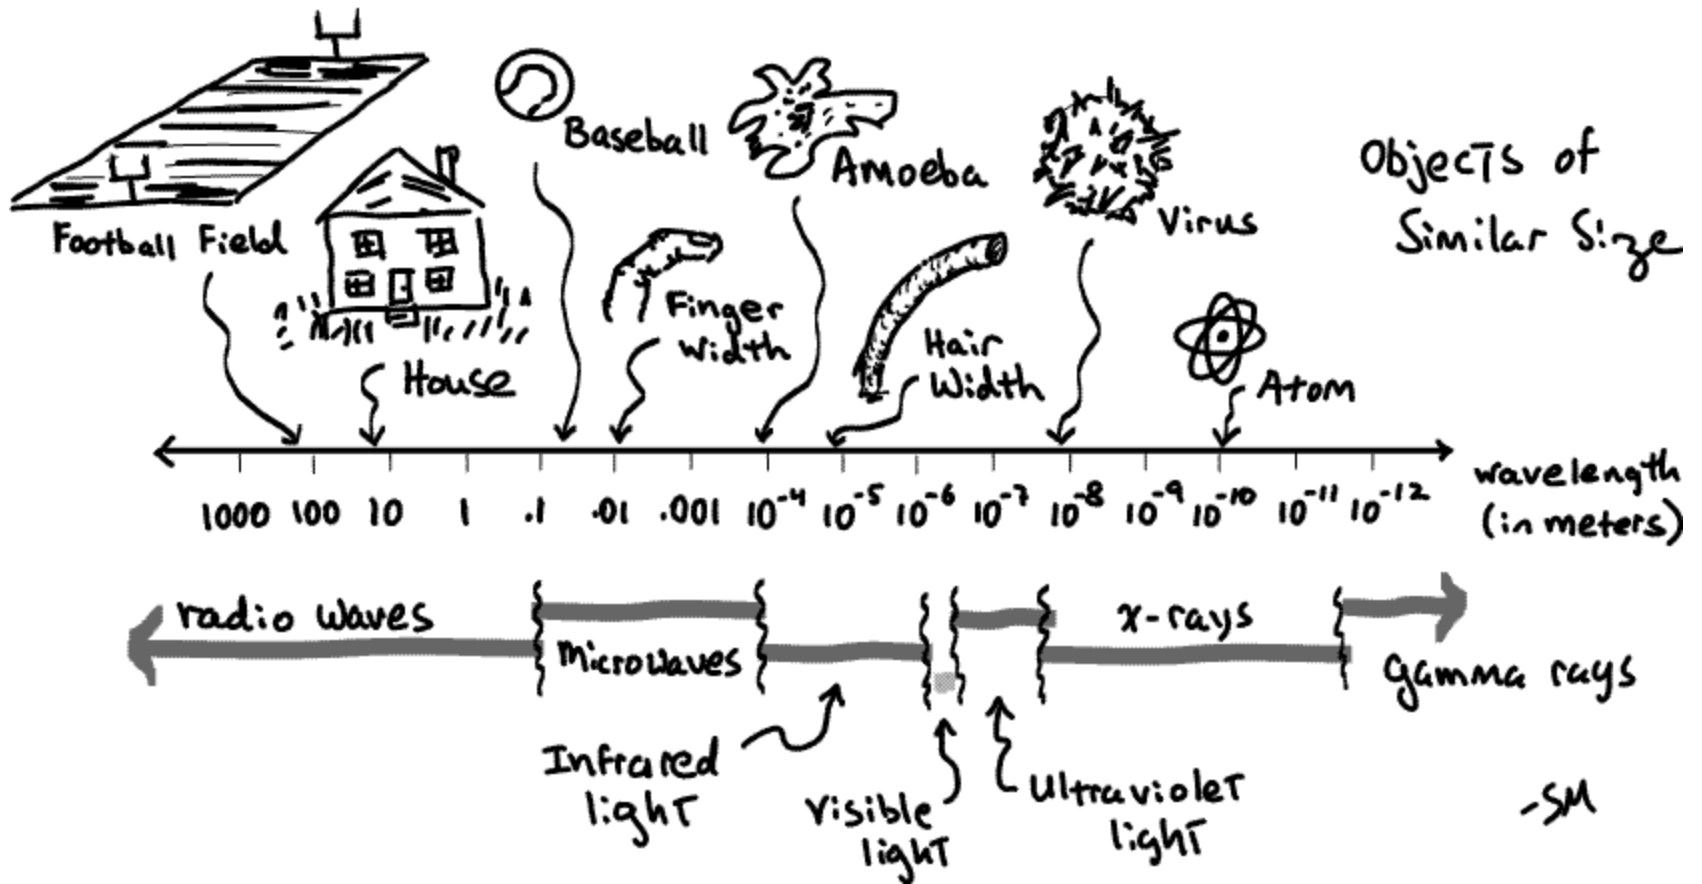 Football Field
House
Baseball
Finger
Width
Amoeba
Hair
Width
Virus
Atom
Objects of
Similar Size
1000 100 10 1 .1 .01 .001 10⁻⁴ 10⁻⁵ 10⁻⁶ 10⁻⁷ 10⁻⁸ 10⁻⁹ 10⁻¹⁰ 10⁻¹¹ 10⁻¹²
wavelength
(in meters)
radio waves
Microwaves
Infrared
light
Visible
light
Ultraviolet
light
x-rays
gamma rays
-SM